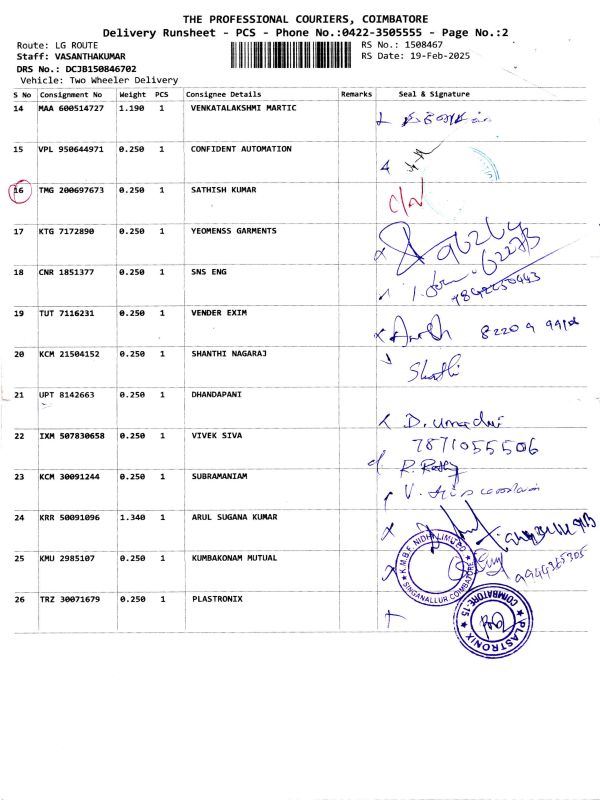 THE PROFESSIONAL COURIERS, COIMBATORE
Delivery Runsheet - PCS - Phone No.:0422-3505555 - Page No.:2
Route: LG ROUTE
RS No.: 1508467
Staff: VASANTHAKUMAR
RS Date: 19-Feb-2025
DRS No.: DCJB150846702
Vehicle: Two Wheeler Delivery
S No Consignment No Weight PCS Consignee Details Remarks Seal & Signature
14 MAA 600514727 1.190 1 VENKATALAKSHMI MARTIC
15 VPL 950644971 0.250 1 CONFIDENT AUTOMATION
16 TMG 200697673 0.250 1 SATHISH KUMAR
17 KTG 7172890 0.250 1 YEOMENSS GARMENTS
18 CNR 1851377 0.250 1 SNS ENG
19 TUT 7116231 0.250 1 VENDER EXIM
20 KCM 21504152 0.250 1 SHANTHI NAGARAJ
21 UPT 8142663 0.250 1 DHANDAPANI
D. umadevi
22 IXM 507830658 0.250 1 VIVEK SIVA
7871055506
23 KCM 30091244 0.250 1 SUBRAMANIAM
24 KRR 50091096 1.340 1 ARUL SUGANA KUMAR
25 KMU 2985107 0.250 1 KUMBAKONAM MUTUAL
K.M.B.F. NIDHI LIMITED
SINGANALLUR COIMBATORE
9944365305
26 TRZ 30071679 0.250 1 PLASTRONIX
PLASTRONIX
COIMBATORE-15